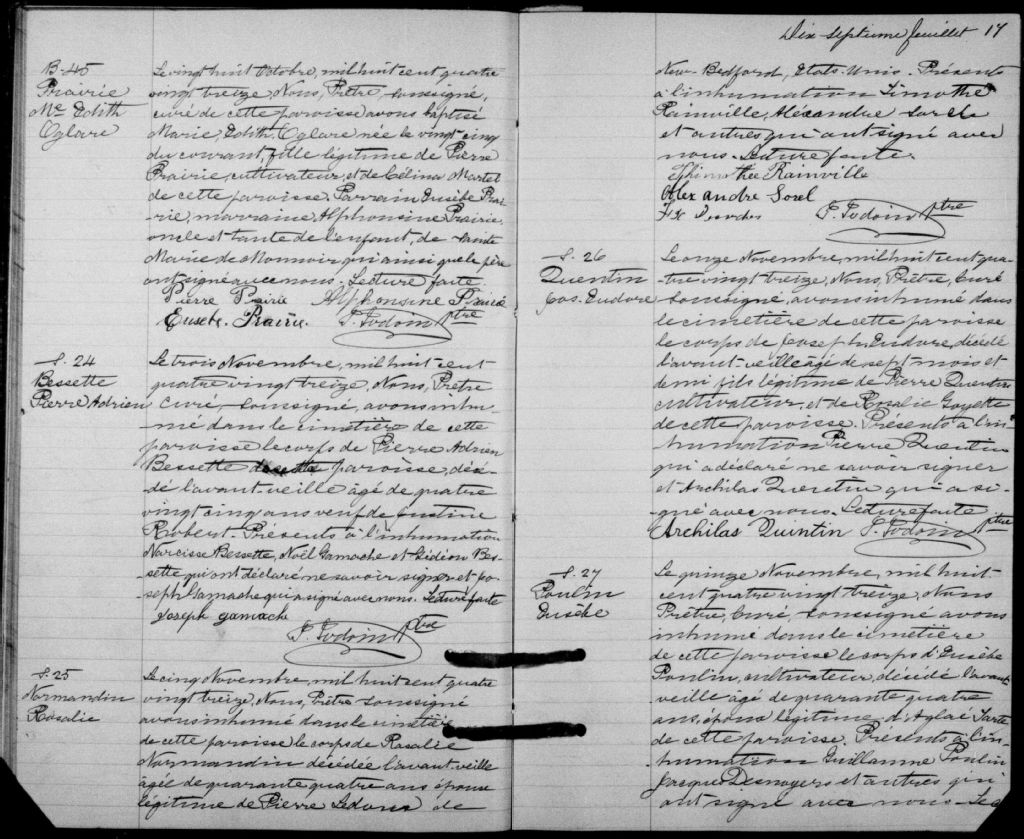 B-45
Prairie
Me Edith
Oglare
Le vingt huit Octobre, mil huit cent quatre
vingt treize, Nous, Prêtre, soussigné,
curé de cette paroisse avons baptisé
Marie, Edith, Oglare née le vingt cinq
du courant, fille légitime de Pierre
Prairie, cultivateur, et de Célina Martel
de cette paroisse. Parrain Eusèbe Prai-
rie, marraine, Alphonsine Prairie,
oncle et tante de l'enfant, de Sainte
Marie de Monnoir qui ainsi que le père
ont signé avec nous. Lecture faite.
Pierre Prairie Alphonsine Prairie
Eusèbe Prairie. J. Jodoin Ptre
S. 24
Bessette
Pierre Adrien
Le trois Novembre, mil huit cent
quatre vingt treize, Nous, Prêtre
Curé, soussigné, avons inhu-
mé dans le cimetière de cette
paroisse le corps de Pierre Adrien
Bessette de cette paroisse, décé-
dé l'avant-veille âgé de quatre
vingt cinq ans veuf de Justine
Robert. Présents à l'inhumation
Narcisse Bessette, Noël Gamache et Gédéon Bes-
sette qui ont déclaré ne savoir signer et Jo-
seph Gamache qui a signé avec nous. Lecture faite
Joseph gamache
J. Jodoin Ptre
S. 25
Normandin
Rosalie
Le cinq Novembre, mil huit cent quatre
vingt treize, Nous, Prêtre soussigné
avons inhumé dans le cimetière
de cette paroisse le corps de Rosalie
Normandin décédée l'avant-veille
âgée de quarante quatre ans épouse
légitime de Pierre Ledoux de
Dix septième feuillet 17
New-Bedford, Etats-Unis. Présents
à l'inhumation Timothé
Rainville, Alexandre Sorel
et autres qui ont signé avec
nous. Lecture faite.
Thimothée Rainville
Alex andre Sorel
J. Jodoin Ptre
S. 26
Quentin
Jos. Eudore
Le onze Novembre, mil huit cent qua-
tre vingt treize, Nous, Prêtre, Curé
soussigné, avons inhumé dans
le cimetière de cette paroisse
le corps de Joseph Eudore, décédé
l'avant-veille âgé de sept mois et
demi fils légitime de Pierre Quentin
cultivateur, et de Rosalie Goyette
de cette paroisse. Présents à l'in-
humation Pierre Quentin
qui a déclaré ne savoir signer
et Archilas Quentin qui a si-
gné avec nous. Lecture faite
Archilas Quintin J. Jodoin ptre
S. 27
Poulin
Eusèbe
Le quinze Novembre, mil huit
cent quatre vingt treize, Nous
Prêtre, Curé, soussigné avons
inhumé dans le cimetière
de cette paroisse le corps d'Eusèbe
Poulin, cultivateur, décédé l'avant
veille âgé de quarante quatre
ans, époux légitime d'Aglaé
de cette paroisse. Présents à l'in-
humation Guillaume Poulin
Jacques Desnoyers et autres qui
ont signé avec nous. Lec